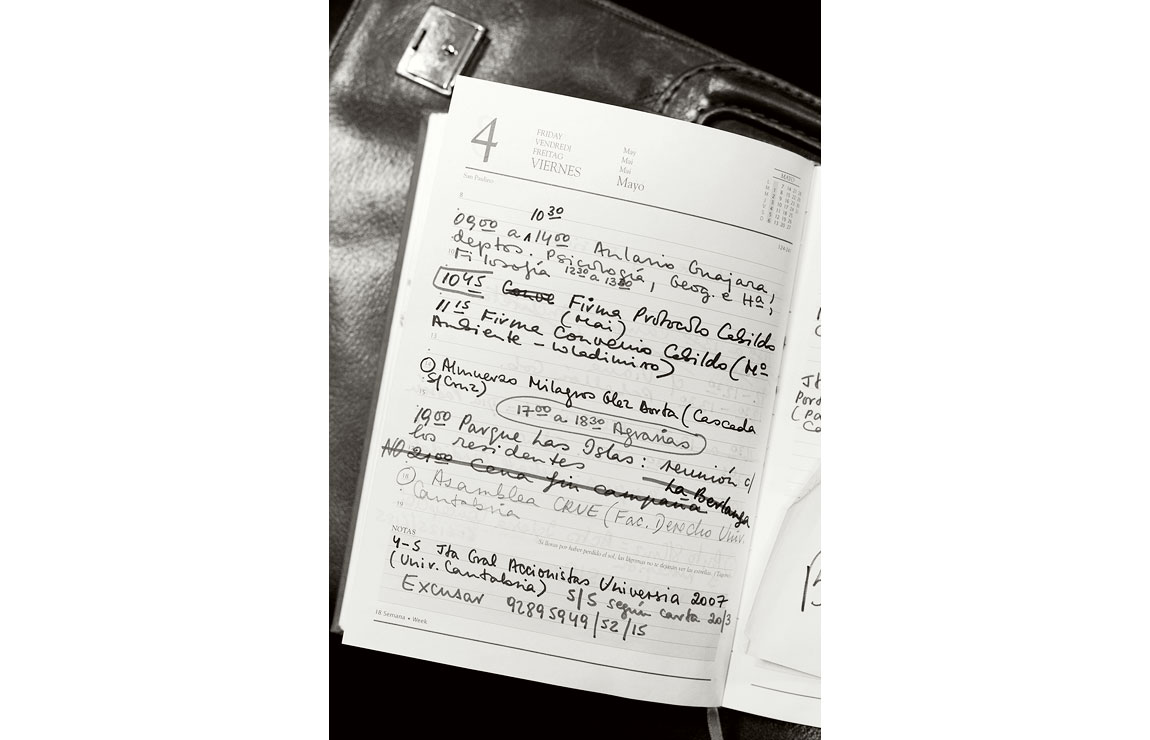 4
FRIDAY
VENDREDI
FREITAG
VIERNES
May
Mai
Mai
Mayo
MAYO
San Paulino
8
10 30
09 00 a 14 00 Aulario Guajara,
deptos. Psicología, Geog. e Hª,
Filosofía 12 30 a 13 30
10 45 Firma Protocolo Cabildo
(Mai)
11 15 Firma Convenio Cabildo (Mº
Ambiente - Wladimiro)
Almuerzo Milagros Glez (Cascada
S/Cruz)
17 00 a 18 30 Agrarias
19 00 Parque Las Islas: reunión c/
los residentes
NO 21 00 Cena fin campaña La Berlanga
18 Asamblea CRUE (Fac. Derecho Univ.
Cantabria
19
NOTAS
Si lloras por haber perdido el sol, las lágrimas no te dejarán ver las estrellas. (Tagore)
4-5 Jta Gral Accionistas Universia 2007
(Univ. Cantabria) S/S según carta 20/3
Excusar 92895949/52/15
18 Semana • Week